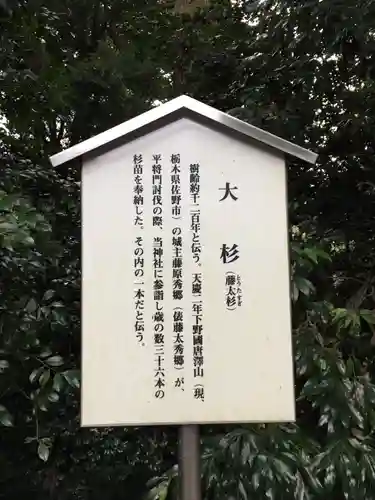 大杉(藤太杉)
とうたすぎ
樹齢約千二百年と伝う。天慶二年下野國唐澤山(現、
栃木県佐野市)の城主藤原秀郷(俵藤太秀郷)が、
平将門討伐の際、当神社に参詣し歳の数三十六本の
杉苗を奉納した。その内の一本だと伝う。